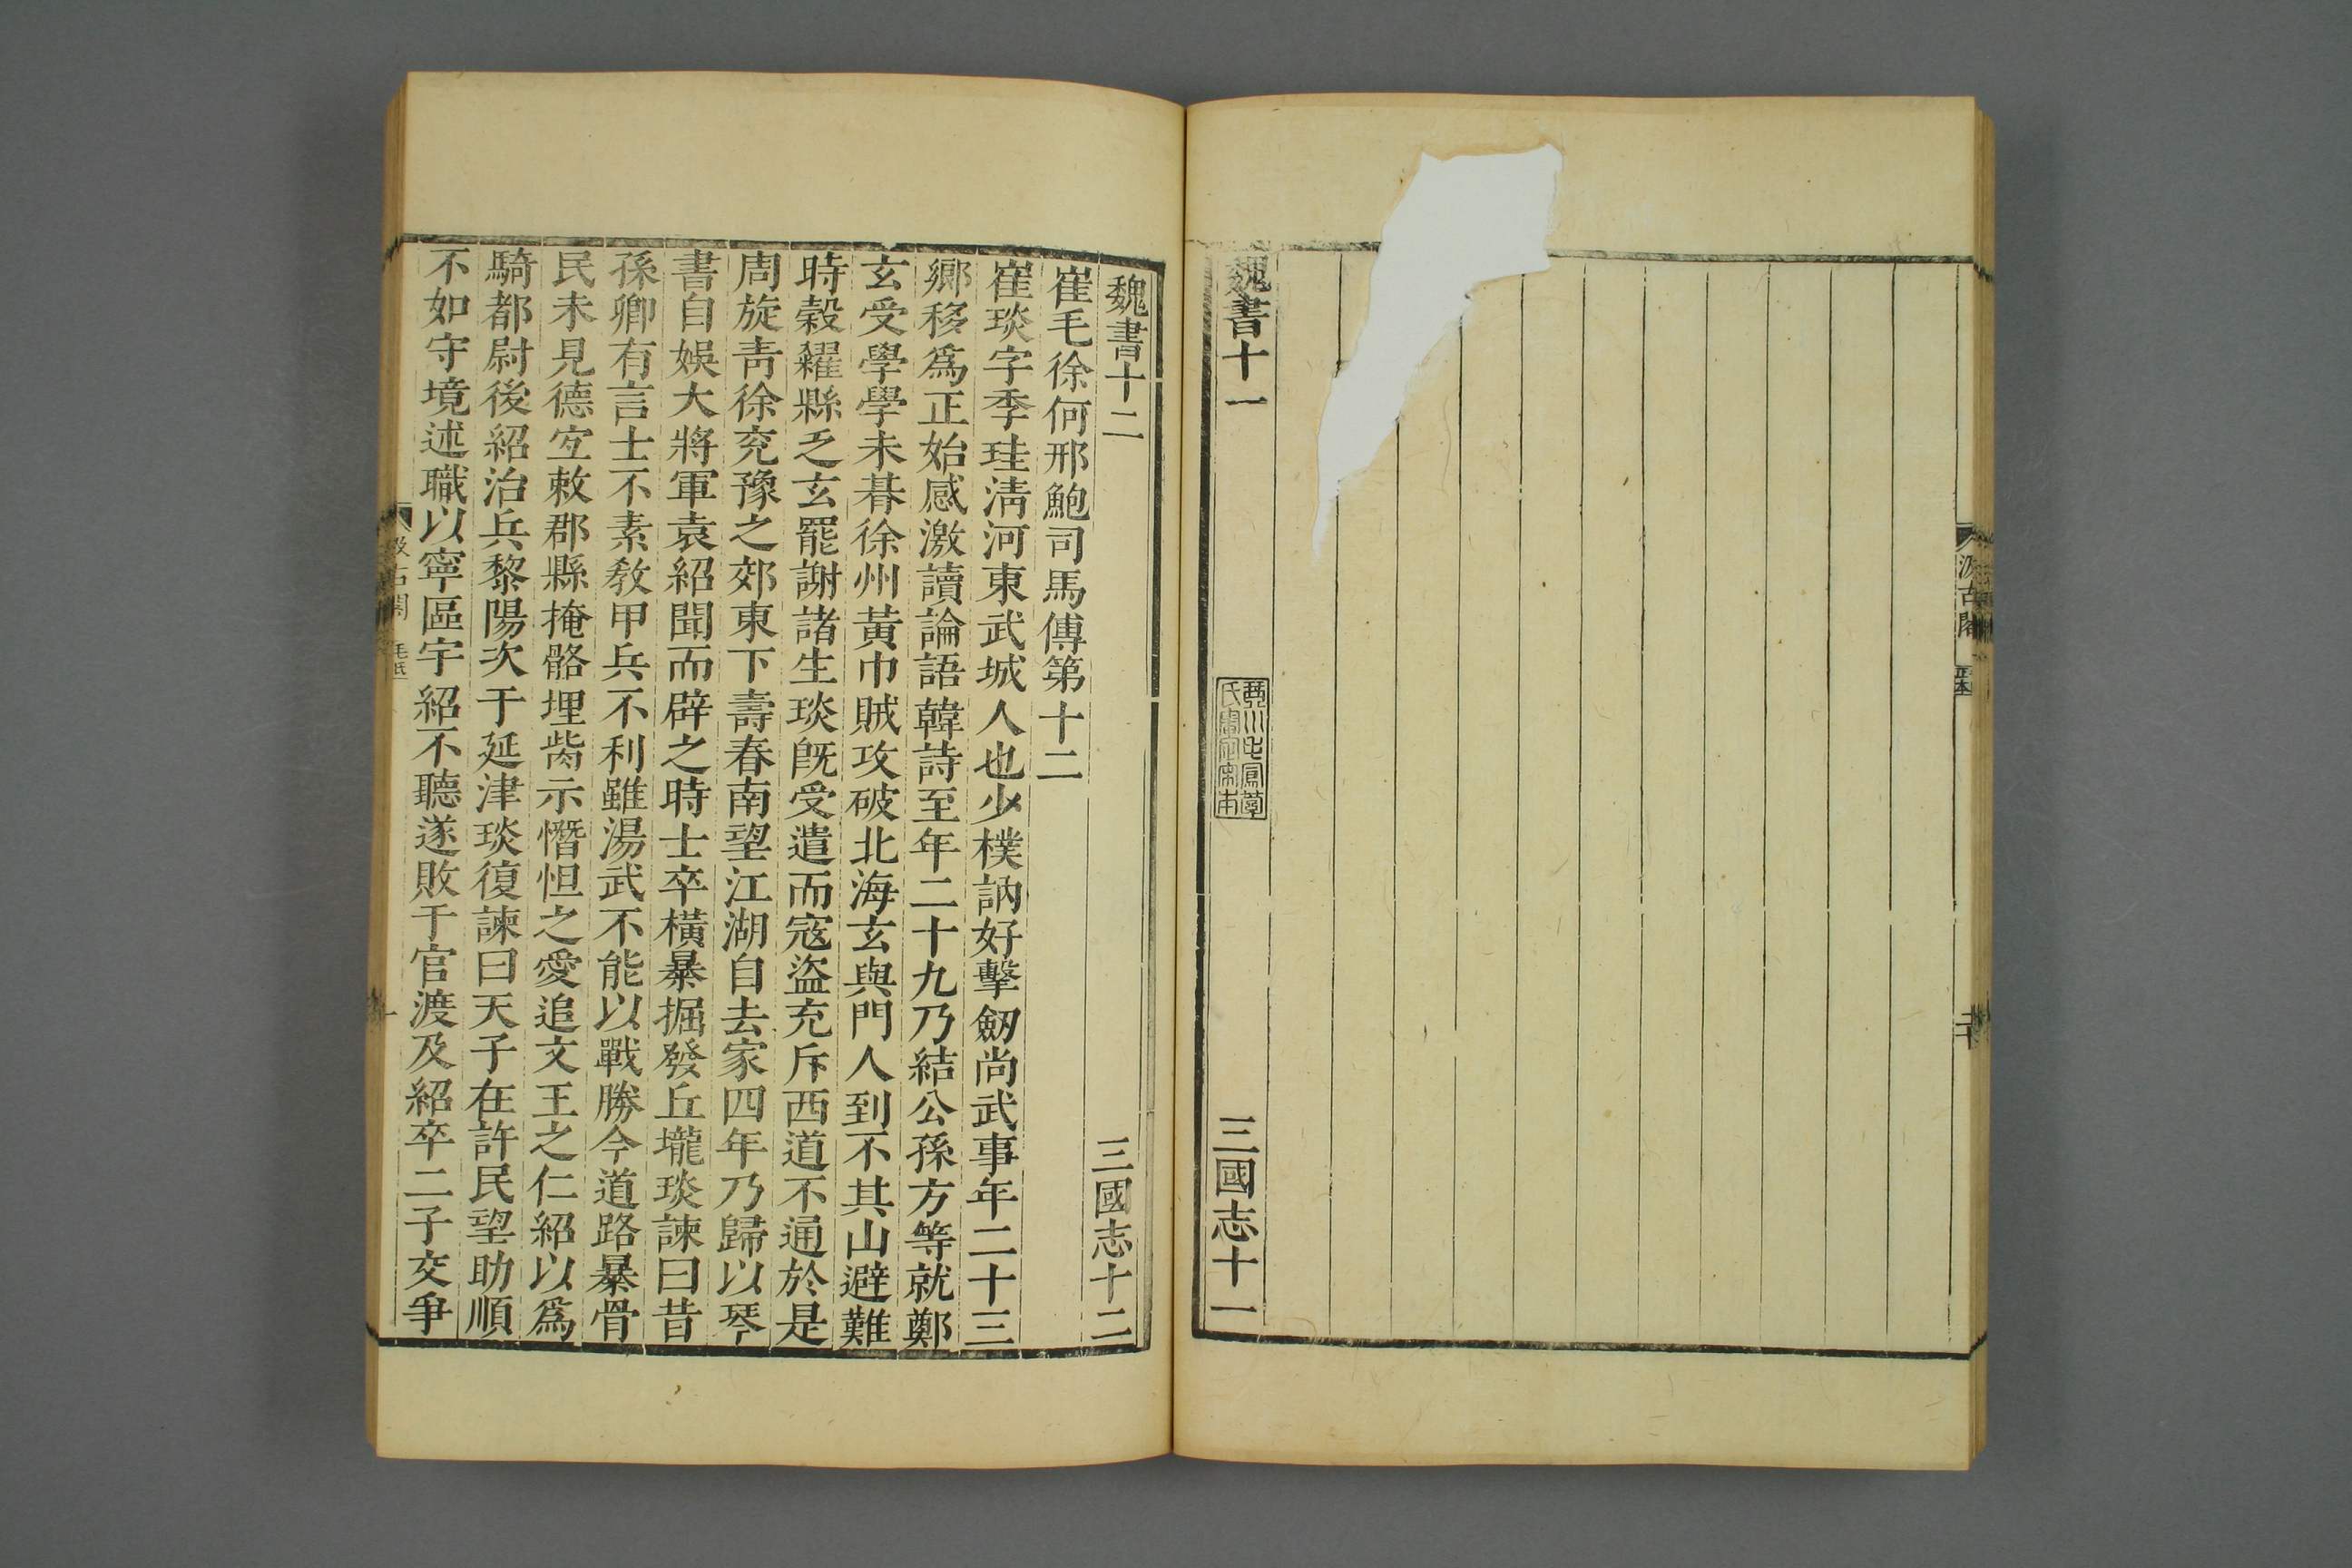 汲古閣
二十
魏書十一
三國志十一
魏書十二
三國志十二
崔毛徐何邢鮑司馬傳第十二
崔琰字季珪淸河東武城人也少樸訥好擊劒尚武事年二十三
鄕移爲正始感激讀論語韓詩至年二十九乃結公孫方等就鄭
玄受學學未朞徐州黃巾賊攻破北海玄與門人到不其山避難
時穀糴縣乏玄罷謝諸生琰旣受遣而宼盜充斥西道不通於是
周旋靑徐兖豫之郊東下壽春南望江湖自去家四年乃歸以琴
書自娛大將軍袁紹聞而辟之時士卒橫暴掘發丘壠琰諫曰昔
孫卿有言士不素敎甲兵不利雖湯武不能以戰勝今道路暴骨
民未見德宐敕郡縣掩骼埋胔示憯怛之愛追文王之仁紹以爲
騎都尉後紹治兵黎陽次于延津琰復諫曰天子在許民望助順
不如守境述職以寧區宇紹不聽遂敗于官渡及紹卒二子交爭